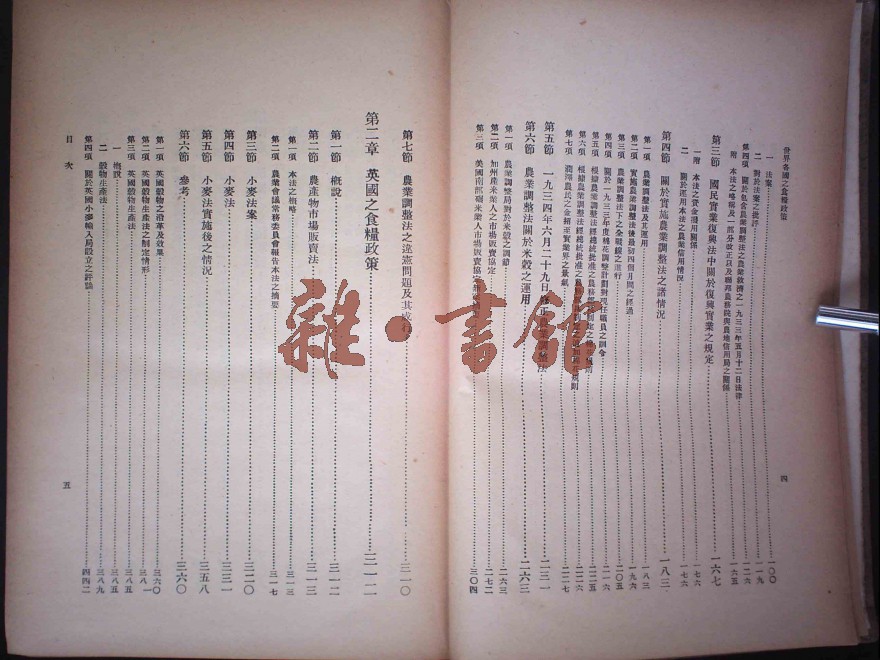 世界各國之食糧政策
一 法案……一〇〇
二 對於法案之批評……一一九
第四項 關於包含農業調整法之農業救濟之一九三三年五月十二日法律……一二六
附 本法之略解及一部分改正以及聯邦農務院與農地信用局之關係……一六五
第三節 國民實業復興法中關於復興實業之規定……一六七
一 附 本法之資金運用關係……一七六
二 關於運用本法之農業信用情況……一七六
第四節 關於實施農業調整法之諸情況……一八三
第一項 農業調整法及其運用……一八三
第二項 實施農業調整法後最初四個月間之經過……一九六
第三項 農業調整法下之全戰線之進行……二〇五
第四項 關於一九三三年度棉花調整計劃對現任職員之訓令……二一六
第五項 根據農業調整法經總統批准之農務部制定之棉花規則……二二五
第六項 根據農業調整法經總統批准之農務部制定之追加棉花規則……二二六
第七項 調澤農民之金額至實業界之景氣……二二七
第五節 一九三四年六月二十九日修正農業調整法……二三一
第六節 農業調整法關於米穀之運用……二六三
第一項 農業調整局對於米穀之調節……二六三
第二項 加州產米業人之市場販賣協定……二七二
第三項 美國南部碾米業人市場販賣協定……三〇四
四
第七節 農業調整法之違憲問題及其改……三一〇
第二章 英國之食糧政策……三一二
第一節 概說……三一二
第二節 農產物市場販賣法……三一三
第一項 本法之概略……三一三
第二項 農業會議常務委員會報告本法之摘要……三一七
第三節 小麥法案……三二〇
第四節 小麥法……三三一
第五節 小麥法實施後之情況……三五八
第六節 參考……三六〇
第一項 英國穀物之沿革及效果……三六〇
第二項 英國穀物生產法之制定情形……三八一
第三項 英國穀物生產法……三八五
一 概說……三八五
二 穀物生產法……三八九
第四項 關於英國小麥輸入局設立之評論……四四二
目次
五
雜·書館